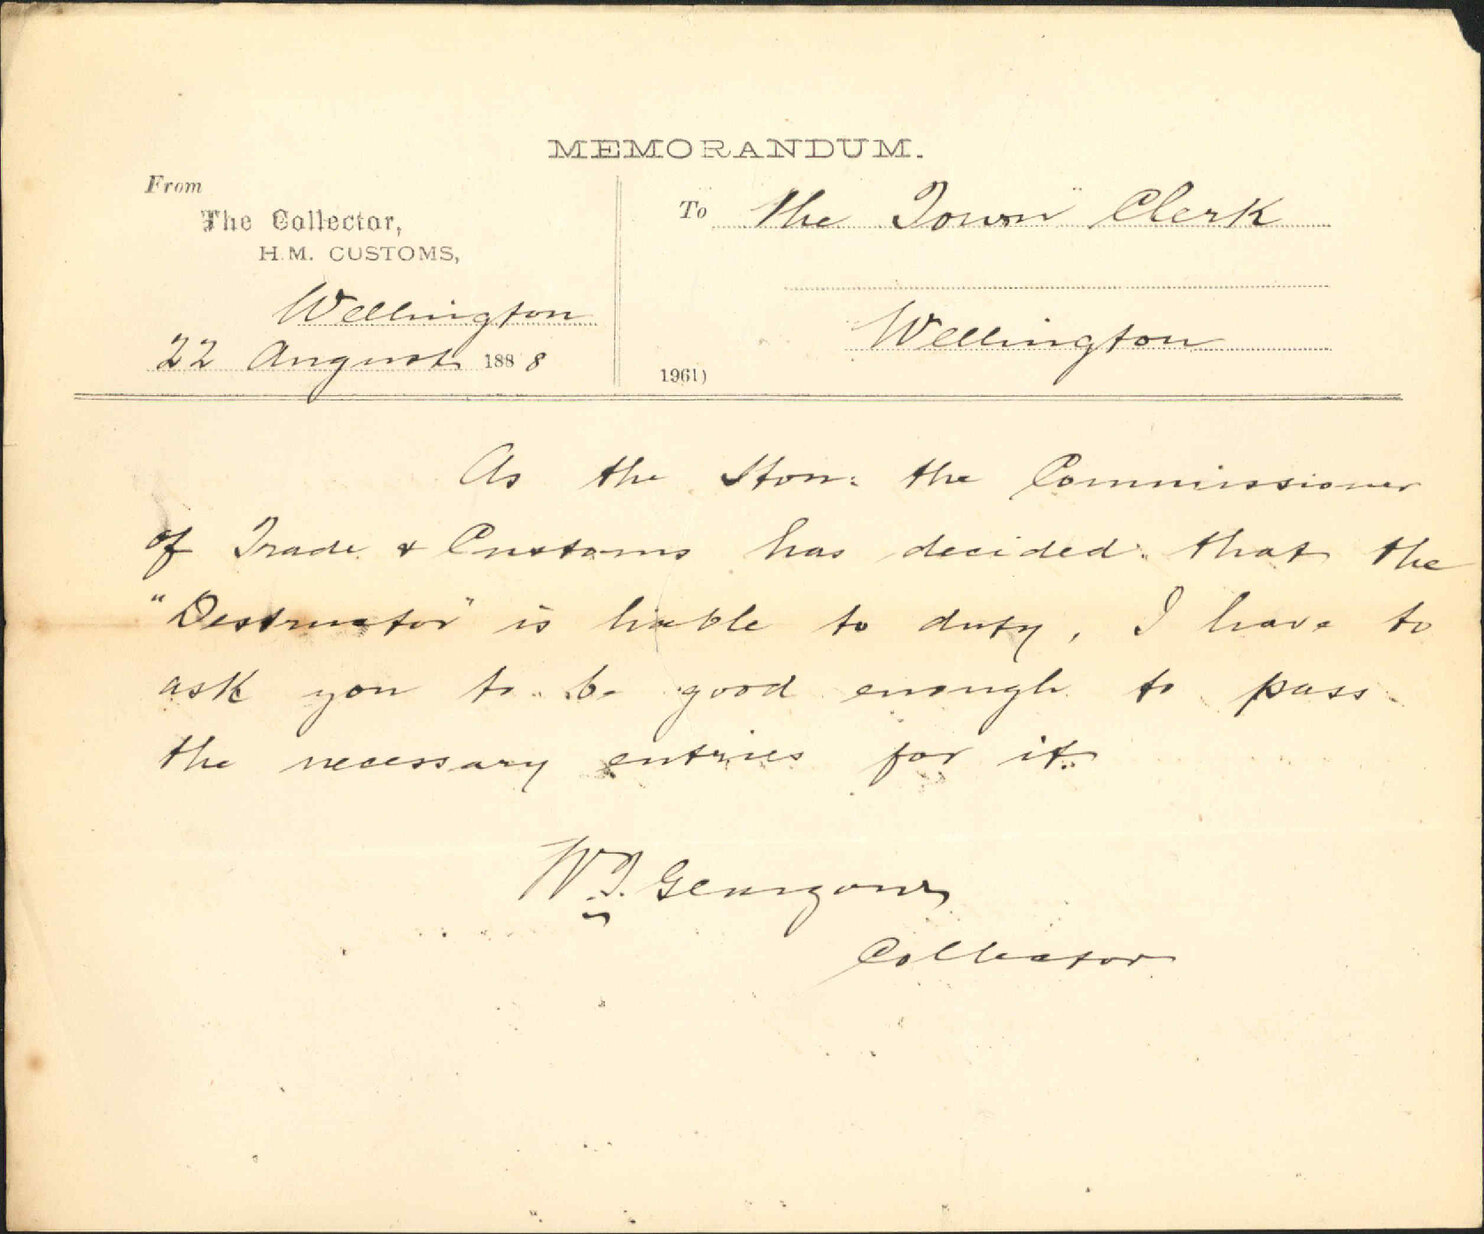 MEMORANDUM.
From
The Collector,
H.M. CUSTOMS,
Wellington
22 August 1888
To The Town Clerk
Wellington
1961)
As the Hon: the Commissioner
of Trade & Customs has decided that the
"Destructor" is liable to duty, I have to
ask you to be good enough to pass
the necessary entries for it.
Collector